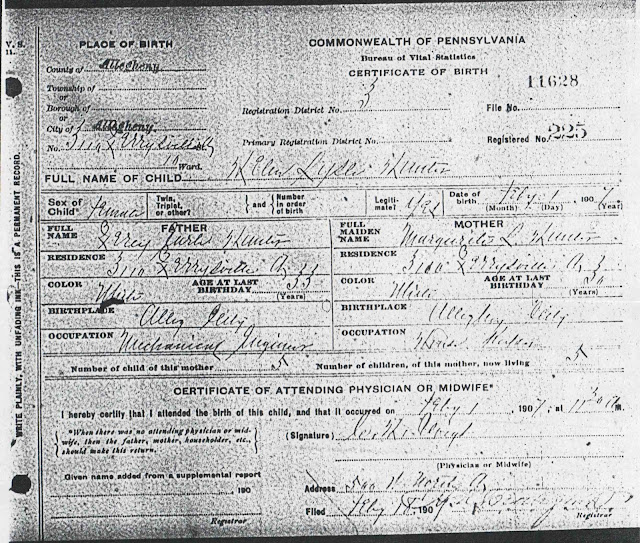 V. S.
11.
PLACE OF BIRTH
COMMONWEALTH OF PENNSYLVANIA
Bureau of Vital Statistics
CERTIFICATE OF BIRTH
County of Allegheny
Township of
or
Borough of
or
City of Allegheny.
No. 3110 Perrysville Av
10 Ward.
Registration District No. 3
Primary Registration District No.
11628
File No.
Registered No. 225
FULL NAME OF CHILD Helen Hunter
Sex of Child
Twin, Triplet, or other?
and
Number in order of birth
Legitimate? Yes
Date of birth, Feby 1 1907
(Month) (Day) (Year)
FATHER
FULL NAME Percy Hunter
RESIDENCE 3110 Perrysville Av
COLOR White
AGE AT LAST BIRTHDAY 33
(Years)
BIRTHPLACE Alleg
OCCUPATION Mechanical Engineer
MOTHER
FULL MAIDEN NAME Marguerite L. Hunter
RESIDENCE Perrysville Av
COLOR White
AGE AT LAST BIRTHDAY
(Years)
BIRTHPLACE Allegheny
OCCUPATION House
Number of child of this mother 5
Number of children, of this mother, now living 5
CERTIFICATE OF ATTENDING PHYSICIAN OR MIDWIFE*
I hereby certify that I attended the birth of this child, and that it occurred on Feby 1 1907, at 11 30 a M.
*When there was no attending physician or midwife, then the father, mother, householder, etc., should make this return.
(Signature)
(Physician or Midwife)
Given name added from a supplemental report
190
Registrar
Address North Av
Filed Feby 190
Registrar
WRITE PLAINLY, WITH UNFADING INK—THIS IS A PERMANENT RECORD.